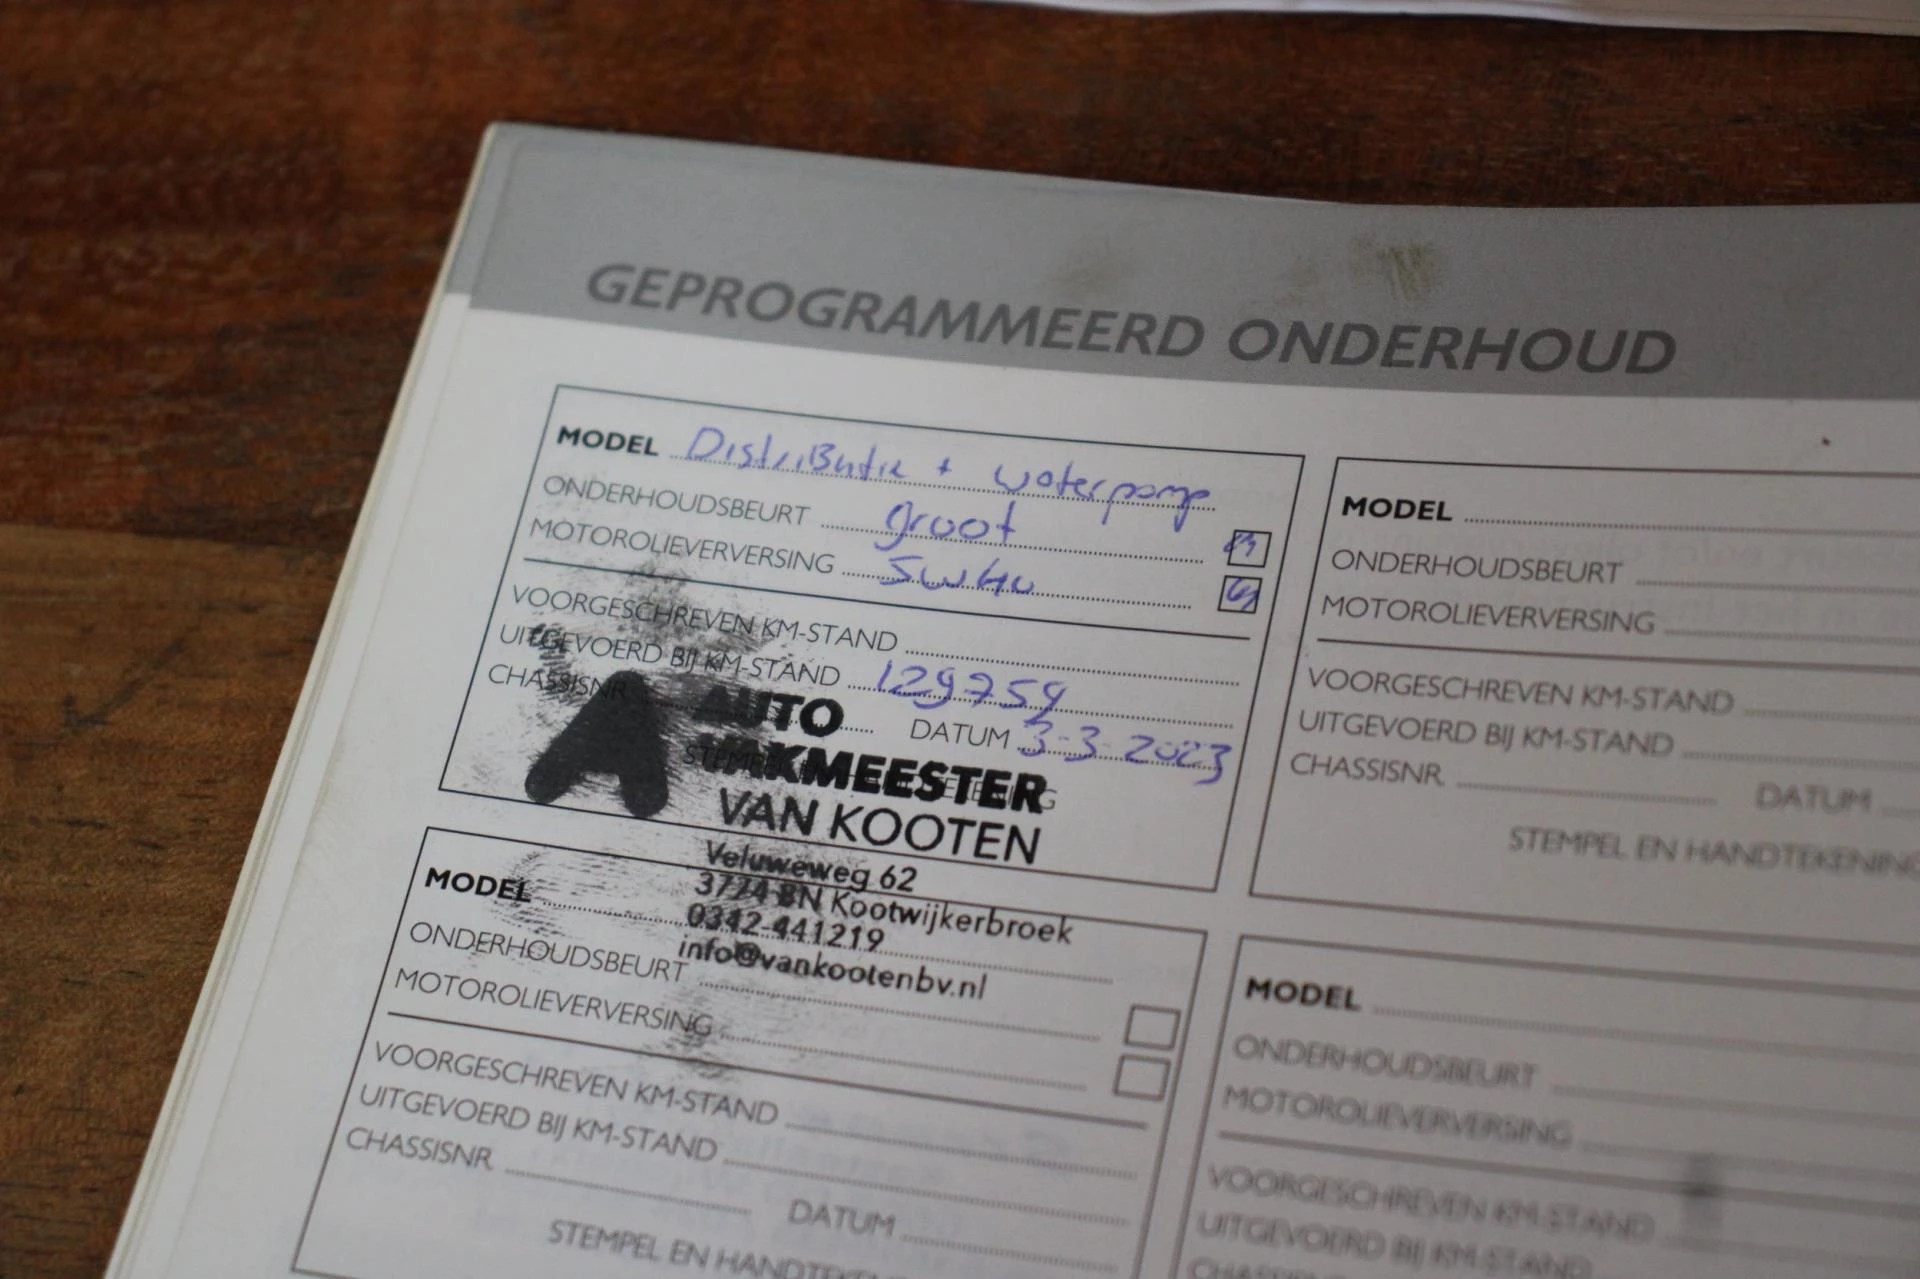 GEPROGRAMMEERD ONDERHOUD
MODEL Distributie + waterpomp
ONDERHOUDSBEURT groot
MOTOROLIEVERVERSING 5W40
VOORGESCHREVEN KM-STAND
UITGEVOERD BIJ KM-STAND 129759
CHASSISNR DATUM 3-3-2023
AUTO
VAKMEESTER
VAN KOOTEN
Veluweweg 62
3774 BN Kootwijkerbroek
0342-441219
info@vankootenbv.nl
MODEL
ONDERHOUDSBEURT
MOTOROLIEVERVERSING
VOORGESCHREVEN KM-STAND
UITGEVOERD BIJ KM-STAND
CHASSISNR. DATUM
STEMPEL EN HANDTEKENING
MODEL
ONDERHOUDSBEURT
MOTOROLIEVERVERSING
VOORGESCHREVEN KM-STAND
UITGEVOERD BIJ KM-STAND
CHASSISNR DATUM
STEMPEL EN HANDTEKE
MODEL
ONDERHOUDSBEURT
MOTOROLIEVERVERSING
VOORGESCHREVEN KM-STAND
UITGEVOERD BIJ KM-STAND
CHASSISNR